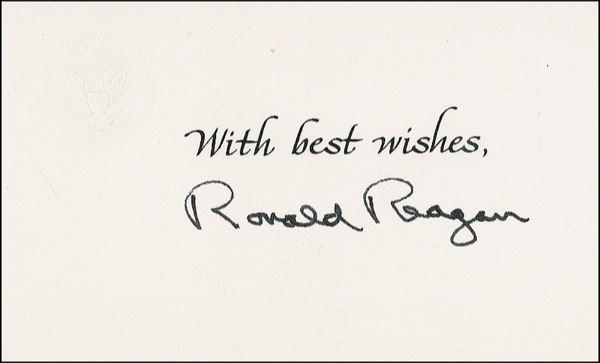 With best wishes,
Ronald Reagan